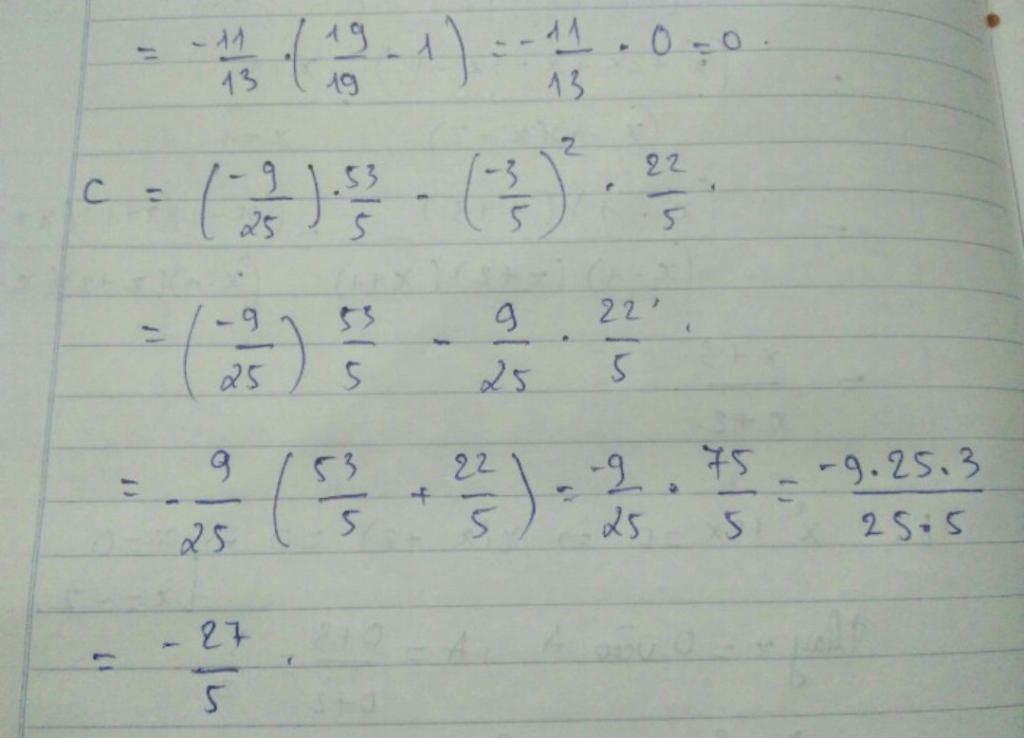 = -11/13 · (19/19 - 1) = -11/13 · 0 = 0.
C = (-9/25) · 53/5 - (-3/5)² · 22/5.
= (-9/25) 53/5 - 9/25 · 22/5.
= -9/25 (53/5 + 22/5) = -9/25 · 75/5 = -9·25·3/25·5
= -27/5.